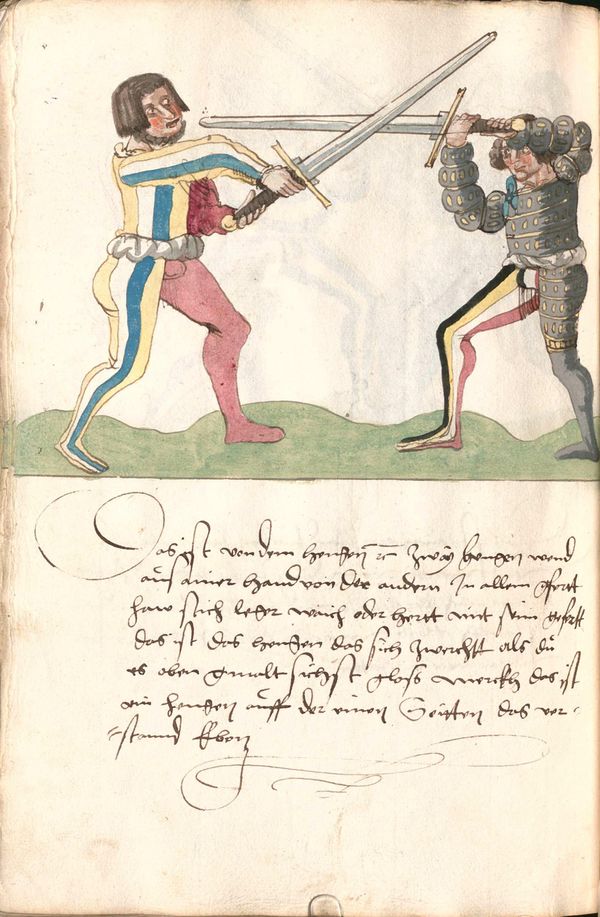 Das ist von dem hengen ℞ Zway hengen wend
aus ainer hand von der andern In allem gfert
haw stich leger waich oder hertt mit sein gefertt
das ist das hengen das sich zwerchtt als du
es oben gmalt sichst gloss merckh das ist
ein hengen auff der einen Seitten das ver-
=stannd Eben